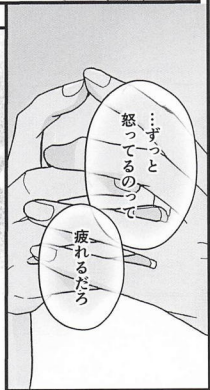 …ずっと
怒ってるのって
疲れるだろ